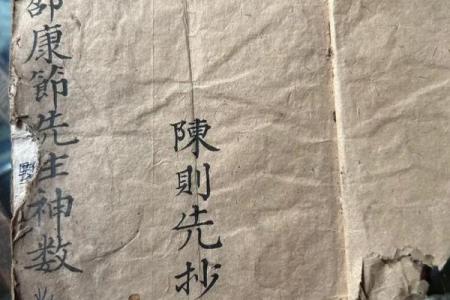 邵康節先生神数
陳則先抄